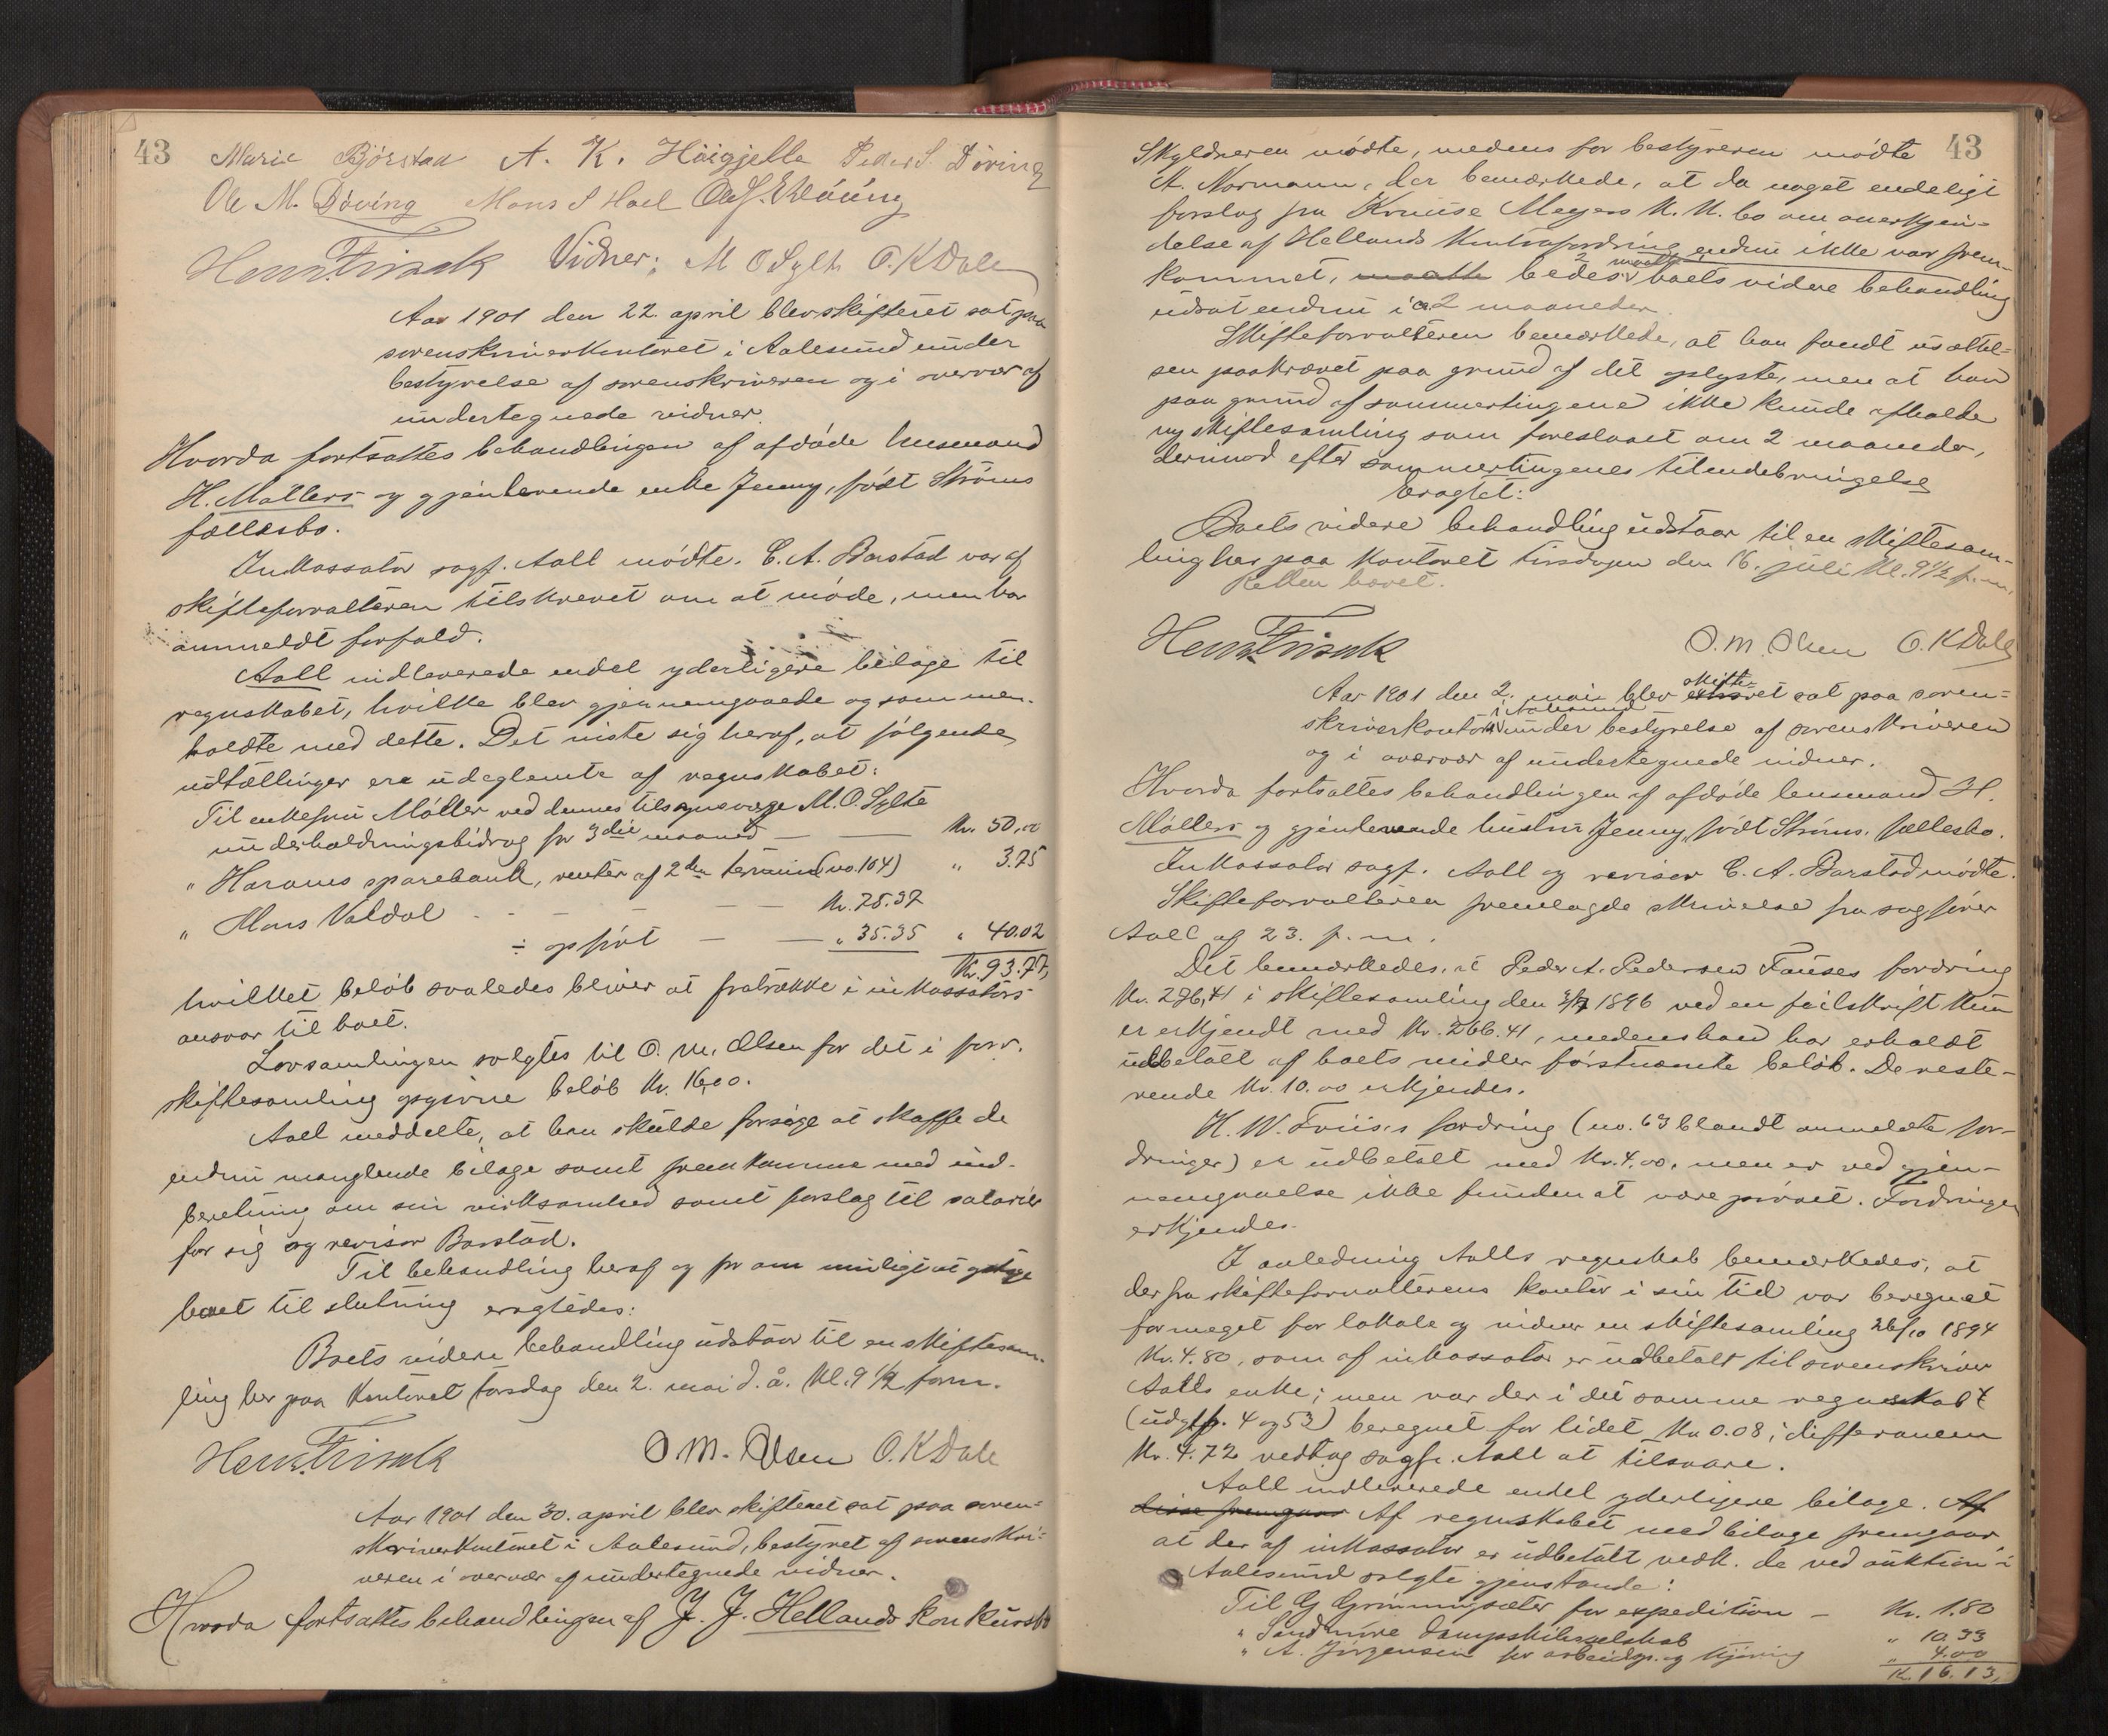 43
Marie Bjørstad A. K. Höigjelle Peder S. Döving
Ole M. Döving Mons S Hoel
Vidner: M O Sylte O. K Dale
Aar 1901 den 22 april blev skifteret sat paa
sorenskriverkontoret i Aalesund under
bestyrelse af sorenskriveren og i overvær af
undertegnede vidner.
Hvorda fortsattes behandlingen af afdøde lensmand
H. Møllers og gjenlevende enke Jenny, født Strøms
fællesbo.
Inkassator sagf. Aall mødte. C. A. Barstad var af
skifteforvalteren tilskrevet om at møde, men har
anmeldt forfald.
Aall indleverede endel yderligere bilage til
regnskabet, hvilke blev gjennemgaaede og sammen-
holdte med dette. Det viste sig heraf, at følgende
udtællinger ere udeglemte af regnskabet:
Til enkefru Møller ved dennes tilsynsværge M. O. Sylte
underholdningsbidrag for 3die maaned — — Kr. 50,00
" Harams sparebank, renter af 2den termin (no. 104) " 3.75
" Hans Valdal - - — — — Kr. 75.37
÷ opført — — " 35.35 " 40.02
Kr. 93.77,
hvilket beløb saaledes bliver at fratrække i inkassators
ansvar til boet.
Lovsamlingen solgtes til O. M. Olsen for det i forr.
skiftesamling opgivne beløb Kr. 16,00.
Aall meddelte, at han skulde forsøge at skaffe de
endnu manglende bilage samt fremkomme med ind-
beretning om sin virksomhed samt forslag til salarier
for sig og revisor Barstad.
Til behandling heraf og for om muligt at
boet til slutning eragtedes:
Boets videre behandling udstaar til en skiftesam-
ling her paa kontoret torsdag den 2. mai d. å. kl. 9 1/2 form.
O. M. Olsen O. K Dale
Aar 1901 den 30. april blev skifteret sat paa soren-
skriverkontoret i Aalesund, bestyret af sorenskri-
veren i overvær af undertegnede vidner.
Hvorda fortsattes behandlingen af J. J. Hellands konkursbo
43
Skyldneren mødte, medens for bestyreren mødte
A. Normann, der bemærkede, at da noget endeligt
forslag fra Kruuse Meyers K. K. bo om anerkjen-
delse af Hellands kontrafordring endnu ikke var frem-
kommet, maatte bedes boets videre behandling
udsat endnu i ca 2 maaneder.
Skifteforvalteren bemærkede, at han fandt udsættel-
sen paakrævet paa grund af det oplyste, men at han
paa grund af sommertingene ikke kunde afholde
ny skiftesamling som foreslaaet om 2 maaneder,
derimod efter sommertingenes tilendebringelse
Eragtet:
Boets videre behandling udstaar til en skiftesam-
ling her paa kontoret tirsdagen den 16. juli kl. 9 1/2 f. m.
Retten hævet.
O. M. Olsen O. K Dale
Aar 1901 den 2. mai blev skifteret sat paa soren-
skriverkontoret i Aalesund under bestyrelse af sorenskriveren
og i overvær af undertegnede vidner.
Hvorda fortsattes behandlingen af afdøde lensmand H.
Møllers og gjenlevende hustru Jenny, født Strøms, fællesbo.
Inkassator sagf. Aall og revisor C. A. Barstad mødte.
Skifteforvalteren fremlagde skrivelse fra sagfører
Aall af 23. f. m.
Det bemærkedes, at Peder A. Pedersen Fauses fordring
Kr. 276,41 i skiftesamling den 1896 ved en feilskrift kun
er erkjendt med Kr. 266.41, medens han har erholdt
udbetalt af boets midler førstnævnte beløb. De reste-
rende Kr. 10.00 erkjendes.
H. W. Friises fordring (no. 63 blandt anmeldte for-
dringer) er udbetalt med Kr. 4,00, men er ved gjen-
nemgaaelse ikke funden at være prøvet. Fordringen
erkjendes.
I anledning Aalls regnskab bemærkedes, at
der fra skifteforvalterens kontor i sin tid var beregnet
formeget for lokale og vidner en skiftesamling 26/10 1894
Kr. 4.80, som af inkassator er udbetalt til sorenskriver
Aalls enke; men var der i det samme regnskab
(udgtp. 4 og 53) beregnet for lidet Kr 0.08; differencen
Kr. 4.72 vedtog sagf. Aall at tilsvare.
Aall indleverede endel yderligere bilage. Af
disse fremgaar Af regnskabet med bilage fremgaar,
at der af inkassator er udbetalt vedk. de ved auktion i
Aalesund solgte gjenstande:
Til G Grønningsæter for expedition — Kr. 1.80
" Søndmøre dampskibsselskab " 10.33
" A. Jørgensen for arbeidsp. og kjøring " 4.00
Kr. 16.13,